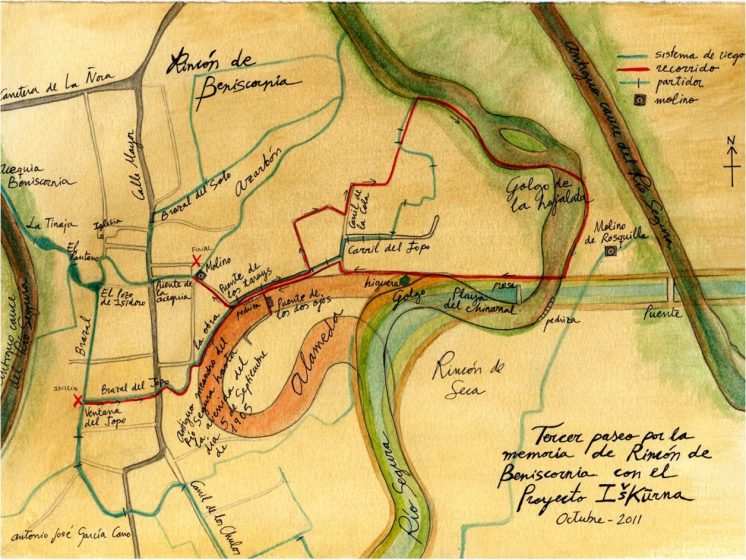 Carretera de La Ñora
Rincón de
Beniscornia
sistema de riego
recorrido
partidor
molino
N
antiguo cauce del Río Segura
acequia
Beniscornia
Calle Mayor
Brazal del Soto
Azarbón
La Tinaja
Iglesia
El
Pantano
FINAL
Molino
El Pozo
de Isidoro
Puente de
la acequia
Puente de
los tarays
Carril de
la Cola
Carril del Jopo
Golgo de
la hojalata
Molino
de Rosquilla
higuera
Golgo
Playa
del chinarral
presa
pedriza
Puente
pedriza
Puente de
los dos ojos
la obra
Brazal
antiguo cauce
del Río Segura
INICIO
Brazal del Jopo
Ventana
del Jopo
antiguo meandro del
Río Segura hasta
la avenida del
día 5 de Septiembre
de 1905
Alameda
Rincón de
Seca
Río Segura
Carril de los Chulos
antonio José García Cano
Tercer paseo por la
memoria de Rincón de
Beniscornia con el
Proyecto IšKurna
Octubre - 2011